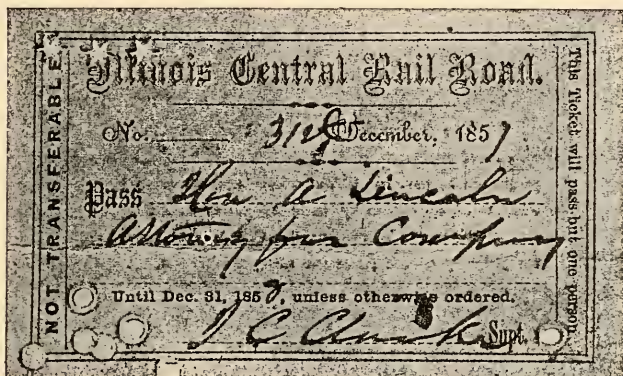 NOT TRANSFERABLE
Illinois Central Rail Road.
No. 31st December, 1857
Pass Hon A Lincoln
Attorney for Company
Until Dec. 31, 185 , unless otherwise ordered.
J C Clark Supt.
This Ticket will pass but one person